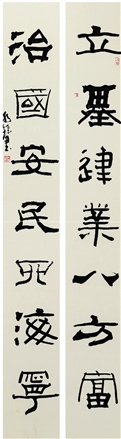 立基建業八方富
治國安民四海寧